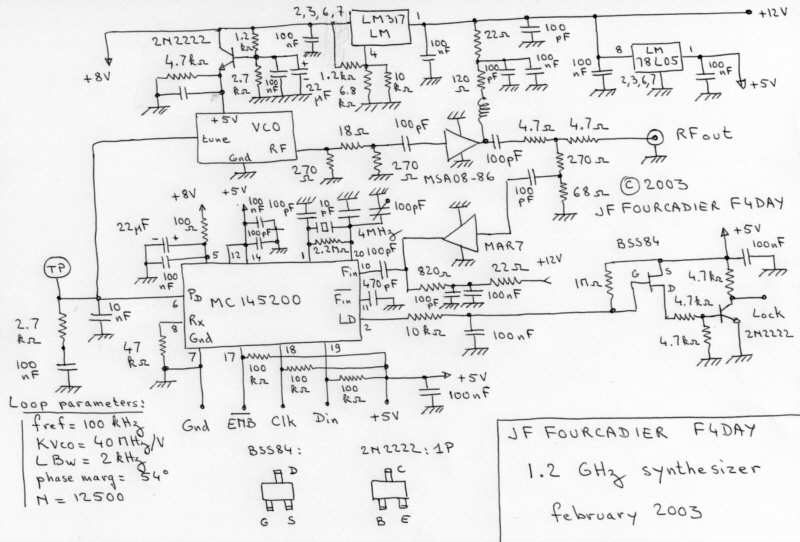 2N2222
1.2 kΩ
100 nF
2, 3, 6, 7,
LM317 LM
1
+12V
+8V
4.7kΩ
2.7 kΩ
100 nF
22 µF
1.2kΩ
6.8 kΩ
4
10 kΩ
100 nF
22Ω
100 pF
100 pF
100nF
120 Ω
100 nF
8
LM 78L05
1
2,3,6,7
100 nF
+5V
+5V
tune
VCO
RF
Gnd
18Ω
270 Ω
270 Ω
100pF
MSA08-86
100pF
4.7Ω
4.7Ω
RF out
270 Ω
68Ω
100 pF
© 2003
JF FOURCADIER F4DAY
+8V
100 Ω
+5V
100 nF
100 pF
100 pF
10 pF
100pF
4MHz
2.2MΩ
22µF
100 nF
5
12
14
1
20
TP
10 nF
6
PD
MC 145200
Fin
10
100 pF
Fin
11
470 pF
LD
2
Rx
8
Gnd
7
MAR7
820Ω
100 pF
100nF
22Ω
+12V
10kΩ
100nF
BSS84
+5V
100nF
1MΩ
G
S
D
4.7kΩ
4.7kΩ
4.7kΩ
Lock
2N2222
2.7 kΩ
100 nF
47 kΩ
17
18
19
100 kΩ
100 kΩ
100 kΩ
+5V
100nF
Gnd
ENB
Clk
Din
+5V
Loop parameters:
fref = 100 kHz
KVCO = 40 MHz/V
LBw = 2 kHz
phase marg = 54°
N = 12500
BSS84:
D
G S
2N2222: 1P
C
B E
JF FOURCADIER F4DAY
1.2 GHz synthesizer
february 2003